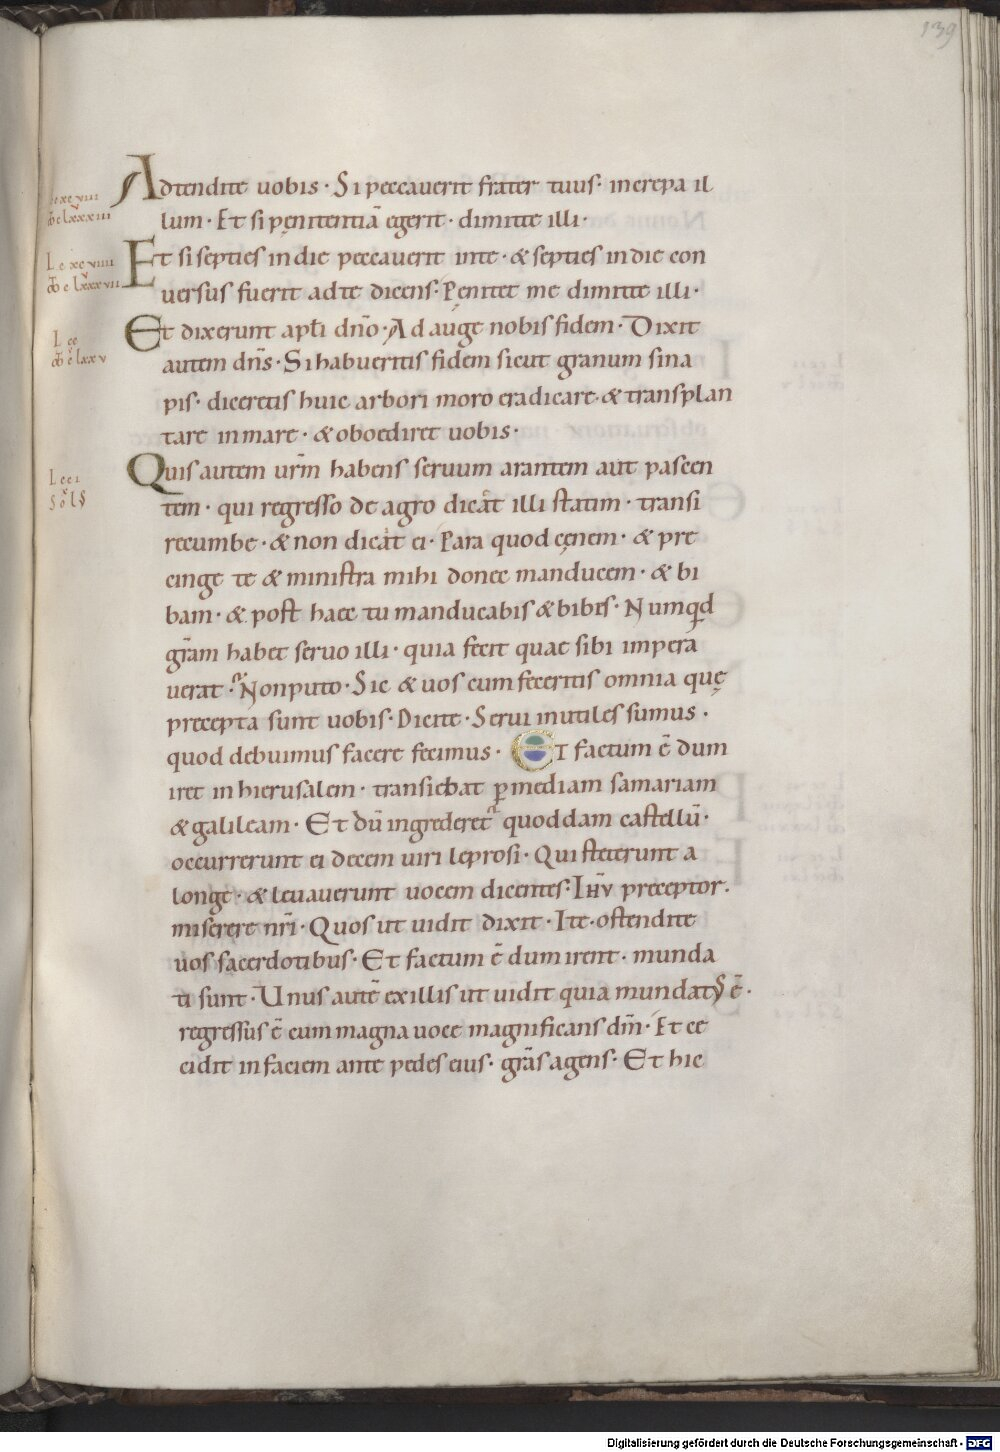 139
Adtendite uobis · Si peccauerit frater tuus · increpa il
lum · Et si pęnitentiā egerit · dimitte illi ·
Lc xc viiii
ōō c lxxxvii
Et si septies in die peccauerit in te · & septies in die con
uersus fuerit ad te dicens · Pęnitet me dimitte illi ·
Lc cc
ōō c lxxv
Et dixerunt apłi dn̄o · Ad auge nobis fidem · Dixit
autem dn̄s · Si habueritis fidem sicut granum sina
pis · diceretis huic arbori moro eradicare · & transplan
tare in mare · & oboediret uobis ·
Lc ci
Quis autem ur̄m habens seruum arantem aut pascen
tem · qui regresso de agro dicat illi statim · transi
recumbe · & non dicat ei · Para quod cęnem · & pre
cinge te & ministra mihi donec manducem · & bi
bam · & post haec tu manducabis & bibis · Numqd
gr̄am habet seruo illi · quia fecit quae sibi impera
uerat · Non puto · Sic & uos cum feceritis omnia quę
precepta sunt uobis · Dicite · Serui inutiles sumus ·
quod debuimus facere fecimus · ET factum ē dum
iret in hierusalem · transiebat ꝑ mediam samariam
& galileam · Et dū ingrederet quoddam castellū ·
occurrerunt ei decem uiri leprosi · Qui steterunt a
longe · & leuauerunt uocem dicentes · Ihu̅ preceptor ·
miserere nr̄i · Quos ut uidit dixit · Ite · ostendite
uos sacerdotibus · Et factum ē dum irent · munda
ti sunt · Unus autē ex illis ut uidit quia mundatꝰ ē ·
regressus ē cum magna uoce magnificans dm̄ · Et ce
cidit in faciem ante pedes eius · gr̄as agens · Et hic
Digitalisierung gefördert durch die Deutsche Forschungsgemeinschaft - DFG